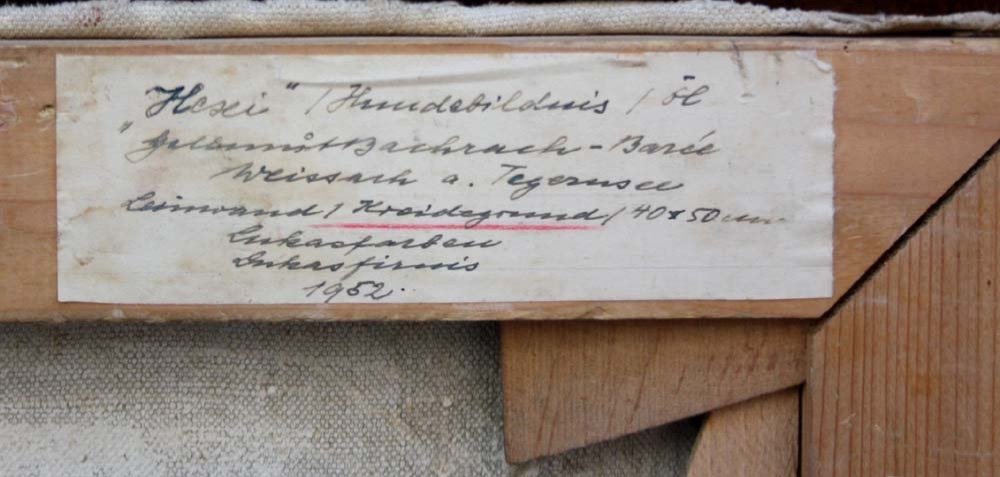 "Hexei" / Hundebildnis / Öl
Hellmut Bachrach-Barée
Weissach a. Tegernsee
Leinwand / Kreidegrund / 40x50 cm.
Lukasfarben
Lukasfirnis
1952.